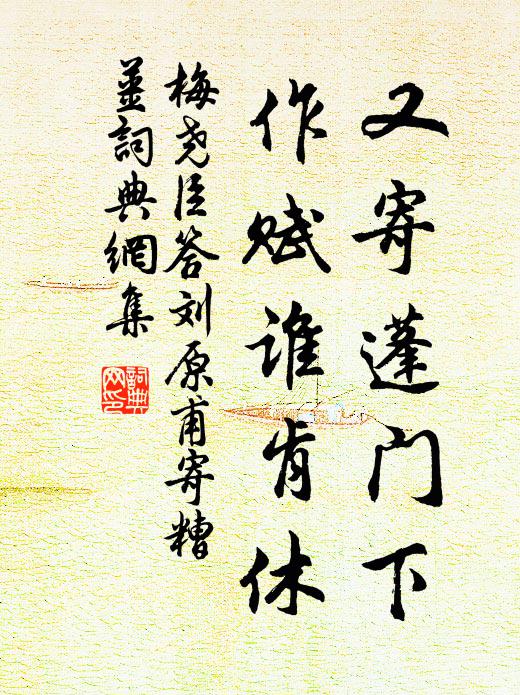 又寄蓬门下
作赋谁肯休
梅尧臣答刘原甫寄糟
薑詞典網集
詞典网印